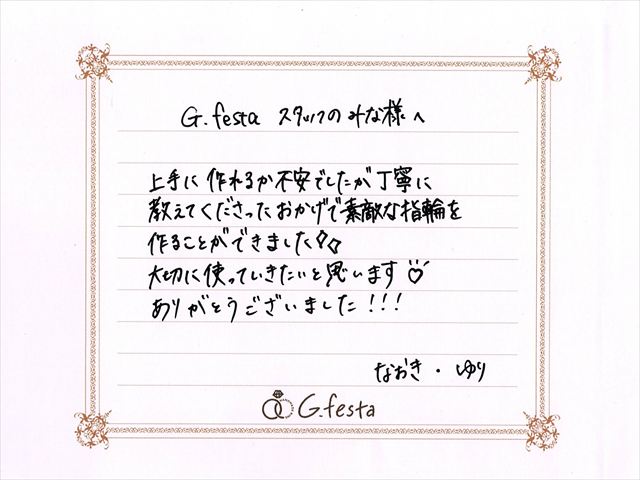 G.festa スタッフのみな様へ
上手に作れるか不安でしたが丁寧に
教えてくださったおかげで素敵な指輪を
作ることができました
大切に使っていきたいと思います
ありがとうございました!!!
なおき・ゆり
G.festa